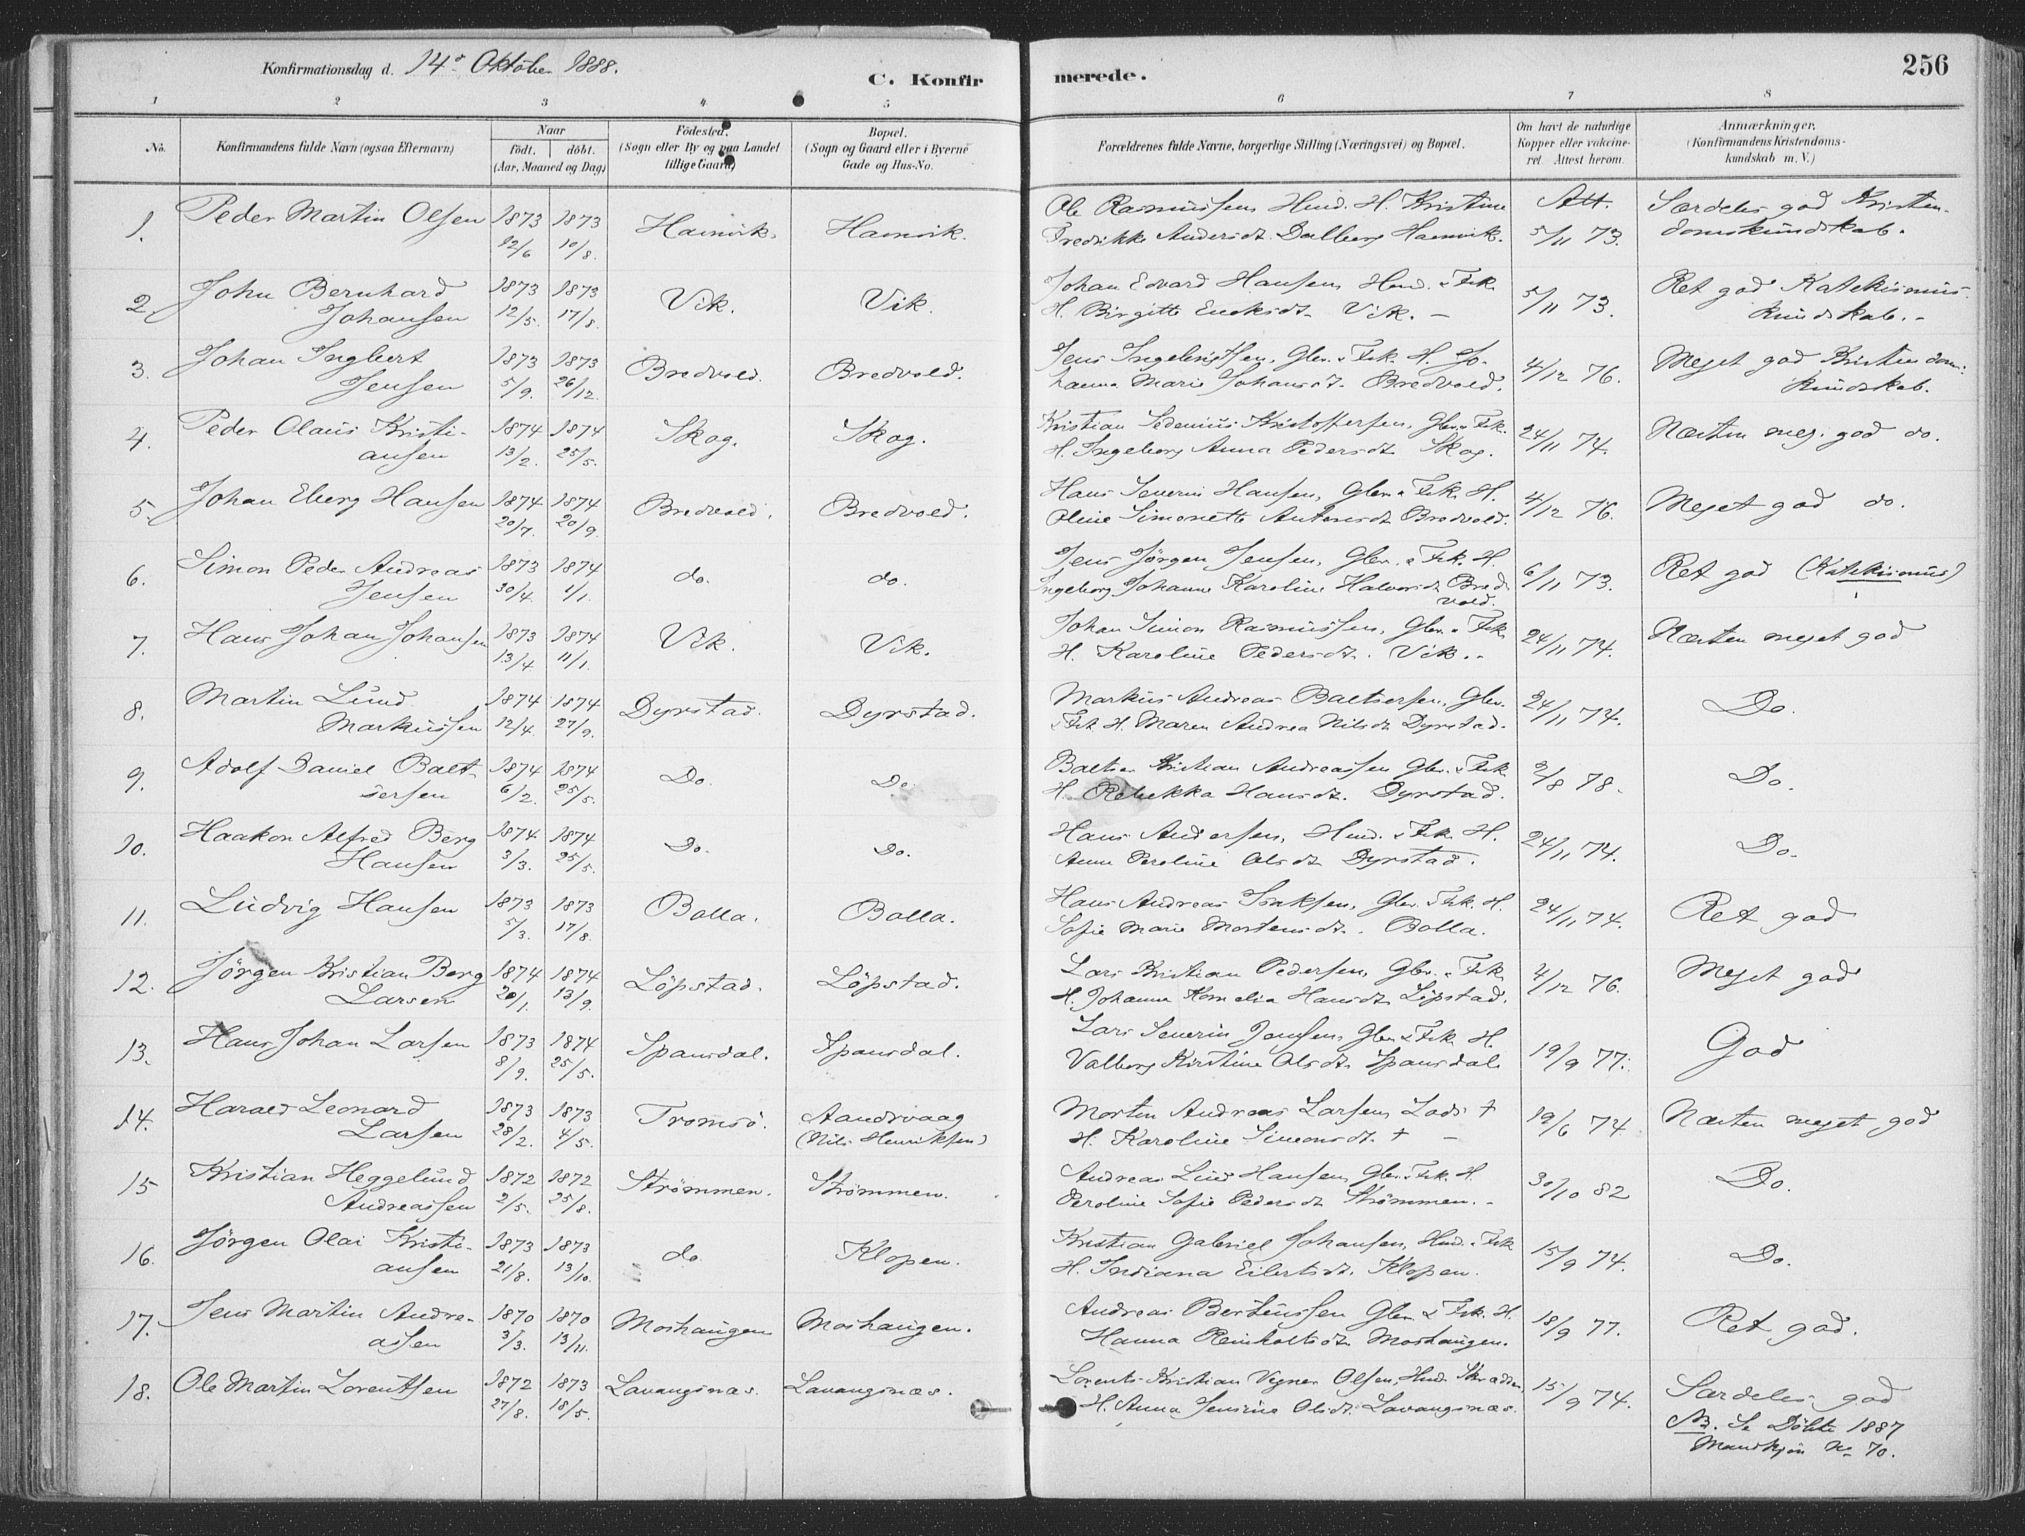 Konfirmationsdag d. 14de Oktober 1888.
C. Konfirmerede.
256
1 2 3 4 5 6 7 8
No. Konfirmandens fulde Navn (ogsaa Efternavn) Naar födt. döbt. (Aar, Maaned og Dag) Födested. (Sogn eller By og paa Landet tillige Gaard) Bopæl. (Sogn og Gaard eller i Byerne Gade og Hus-No. Forældrenes fulde Navne, borgerlige Stilling (Næringsvei) og Bopæl. Om havt de naturlige Kopper eller vakcineret. Attest herom. Anmærkninger. (Konfirmandens Kristendomskundskab m. V.)
1. Peder Martin Olsen 1873 12/6 1873 10/8. Hamvik. Hamvik. Ole Rasmussen Hmd. H. Kristine Att. Særdeles god Kristen-
Fredrikke Andersdt. Dalberg Hamvik. 5/11 73. domskundskab.
2. John Bernhard 1873 1873 Vik. Vik. Johan Edvard Hansen Hmd. & Fsk.
Johansen 12/5. 17/8. H. Birgitte Enoksdt. Vik. – 5/11 73. Ret god Katekismus-
kundskab. –
3. Johan Ingbert 1873 1873 Bredvold. Bredvold. Jens Ingebrigtsen, Gbr. & Fsk. H. Jo-
Jensen 5/9. 26/12. hanna Marie Johansdt. Bredvold. 4/12 76. Meget god Kristendom:
kundskab.
4. Peder Olaus Kristi- 1874 1874 Skog. Skog. Kristian Sedenius Kristoffersen, Gbr. & Fsk.
ansen 13/2. 25/5. H. Ingeborg Anna Pedersdt. Skog. 24/11 74. Næsten meg. god do.
5. Johan Eberg Hansen 1874 1874 Bredvold. Bredvold. Hans Severin Hansen, Gbr. & Fsk. H.
20/7. 20/9. Oline Simonette Antonsdt. Bredvold. 4/12 76. Meget god do.
6. Simon Peder Andreas 1873 1874 do. do. Jens Jørgen Jensen, Gbr. & Fsk. H.
Jensen 30/4. 1/1. Ingeborg Johanne Karoline Halvorsdt. Bred-
vold. 6/11 73. Ret god (Katekismus)
7. Hans Johan Johansen 1873 1874 Vik. Vik. Johan Simon Rasmussen, Gbr. & Fsk.
13/4 11/1. H. Karoline Pedersdt. Vik. – 24/11 74. Næsten meget god
8. Martin Lund 1874 1874 Dyrstad. Dyrstad. Markus Andreas Baltsersen, Gbr.
Markussen 12/4. 27/9. & Fsk. H. Maren Andrea Nilsdt. Dyrstad. 24/11 74. Do.
9. Adolf Daniel Balt- 1874 1874 Do. Do. Baltser Kristian Andreassen Gbr. & Fsk.
sersen 6/2. 25/5. H. Rebekka Hansdt. Dyrstad. 2/8 78. Do.
10. Haakon Alfred Berg 1874 1874 Do. Do. Hans Andersen, Hmd. & Fsk. H.
Hansen 3/3. 25/5. Anne Peroline Olsdt. Dyrstad. 24/11 74. Do.
11. Ludvig Hansen 1873 1873 Bolla. Bolla. Hans Andreas Isaksen, Gbr. & Fsk. H.
5/3. 17/8. Sofie Marie Mortensdt. Bolla. 24/11 74. Ret god
12. Jørgen Kristian Berg 1874 1874 Löpstad. Löpstad. Lars Kristian Pedersen, Gbr. & Fsk.
Larsen 20/1. 13/9. H. Johanna Kornelia Hansdt. Löpstad. 4/12 76. Meget god
13. Hans Johan Larsen 1873 1874 Spansdal. Spansdal. Lars Severin Jensen, Gbr. & Fsk. H.
8/9. 25/5. Valborg Kirstine Olsdt. Spansdal 19/9 77. God
14. Harald Leonard 1873 1873 Tromsö. Aandvaag Morten Andreas Larsen, Lods +
Larsen 28/2. 4/5. (Nils Henriksen) H. Karoline Simonsdt. + – 19/6 74 Næsten meget god
15 Kristian Heggelund 1872 1872 Strømmen. Strømmen. Andreas Lind Hansen, Gbr. & Fsk. H.
Andreassen 2/5. 25/8. Peroline Sofie Pedersdt. Strømmen. – 30/10 82 Do.
16. Jørgen Olai Kristi- 1873 1873 do Klopen. Kristian Gabriel Johansen, Hmd. & Fsk
ansen 21/8. 13/10. H. Indiana Eilertsdt. Klopen. 15/9 74. Do.
17. Jens Martin Andre- 1870 1870 Moshaugen Moshaugen. Andreas Bertinssen Gbr. & Fsk. H.
assen 3/3. 13/11. Hanna Reinholtsdt. Moshaugen. 18/9 77. Ret god.
18. Ole Martin Lorentsen 1872 1873 Lavangsnæs. Lavangsnæs. Lorents Kristian Vegner Olsen, Hmd. Skrædder,
27/8. 18/5. H. Anna Jensine Olsdt. Lavangsnæs. 15/9 74. Særdeles god
NB. Se Döbte 1887
Mandkjön No 70.